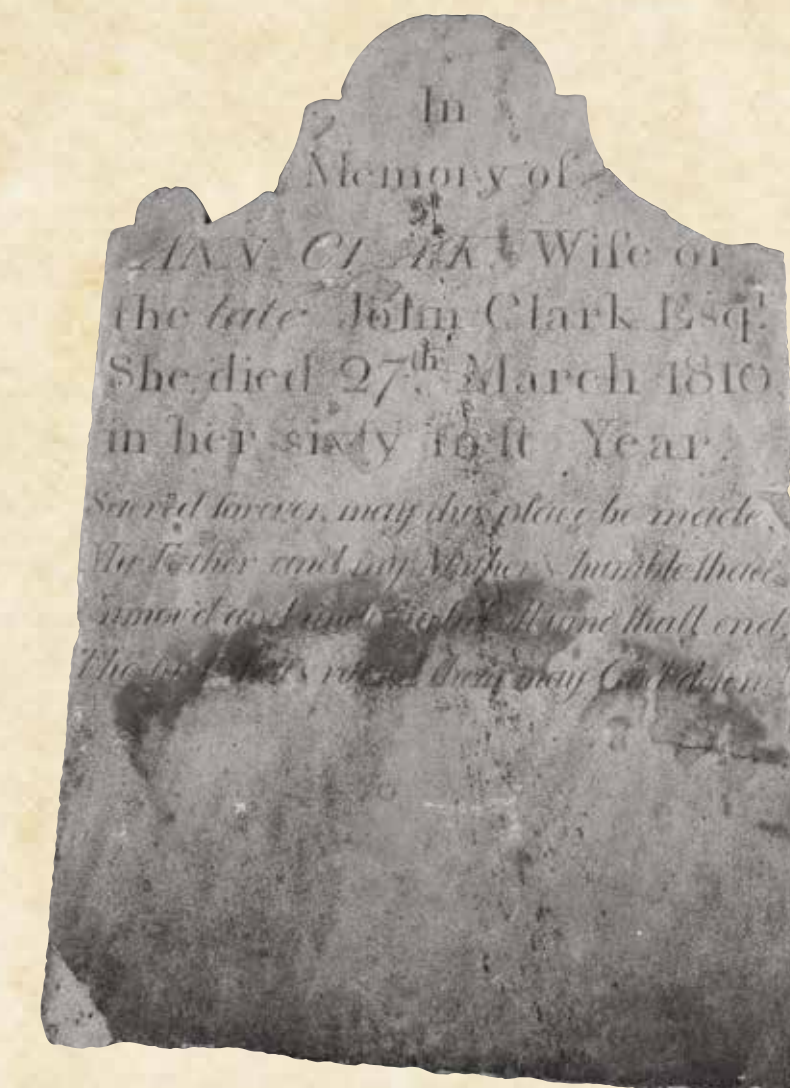 In
Memory of
ANN CLARK, Wife of
the late John Clark Esqr.
She died 27th March 1810,
in her sixty firſt Year.
Sacred forever, may this place be made,
My Father and my Mothers humble ſhade
Unmov'd and time ſhall end,
The round them may God defend